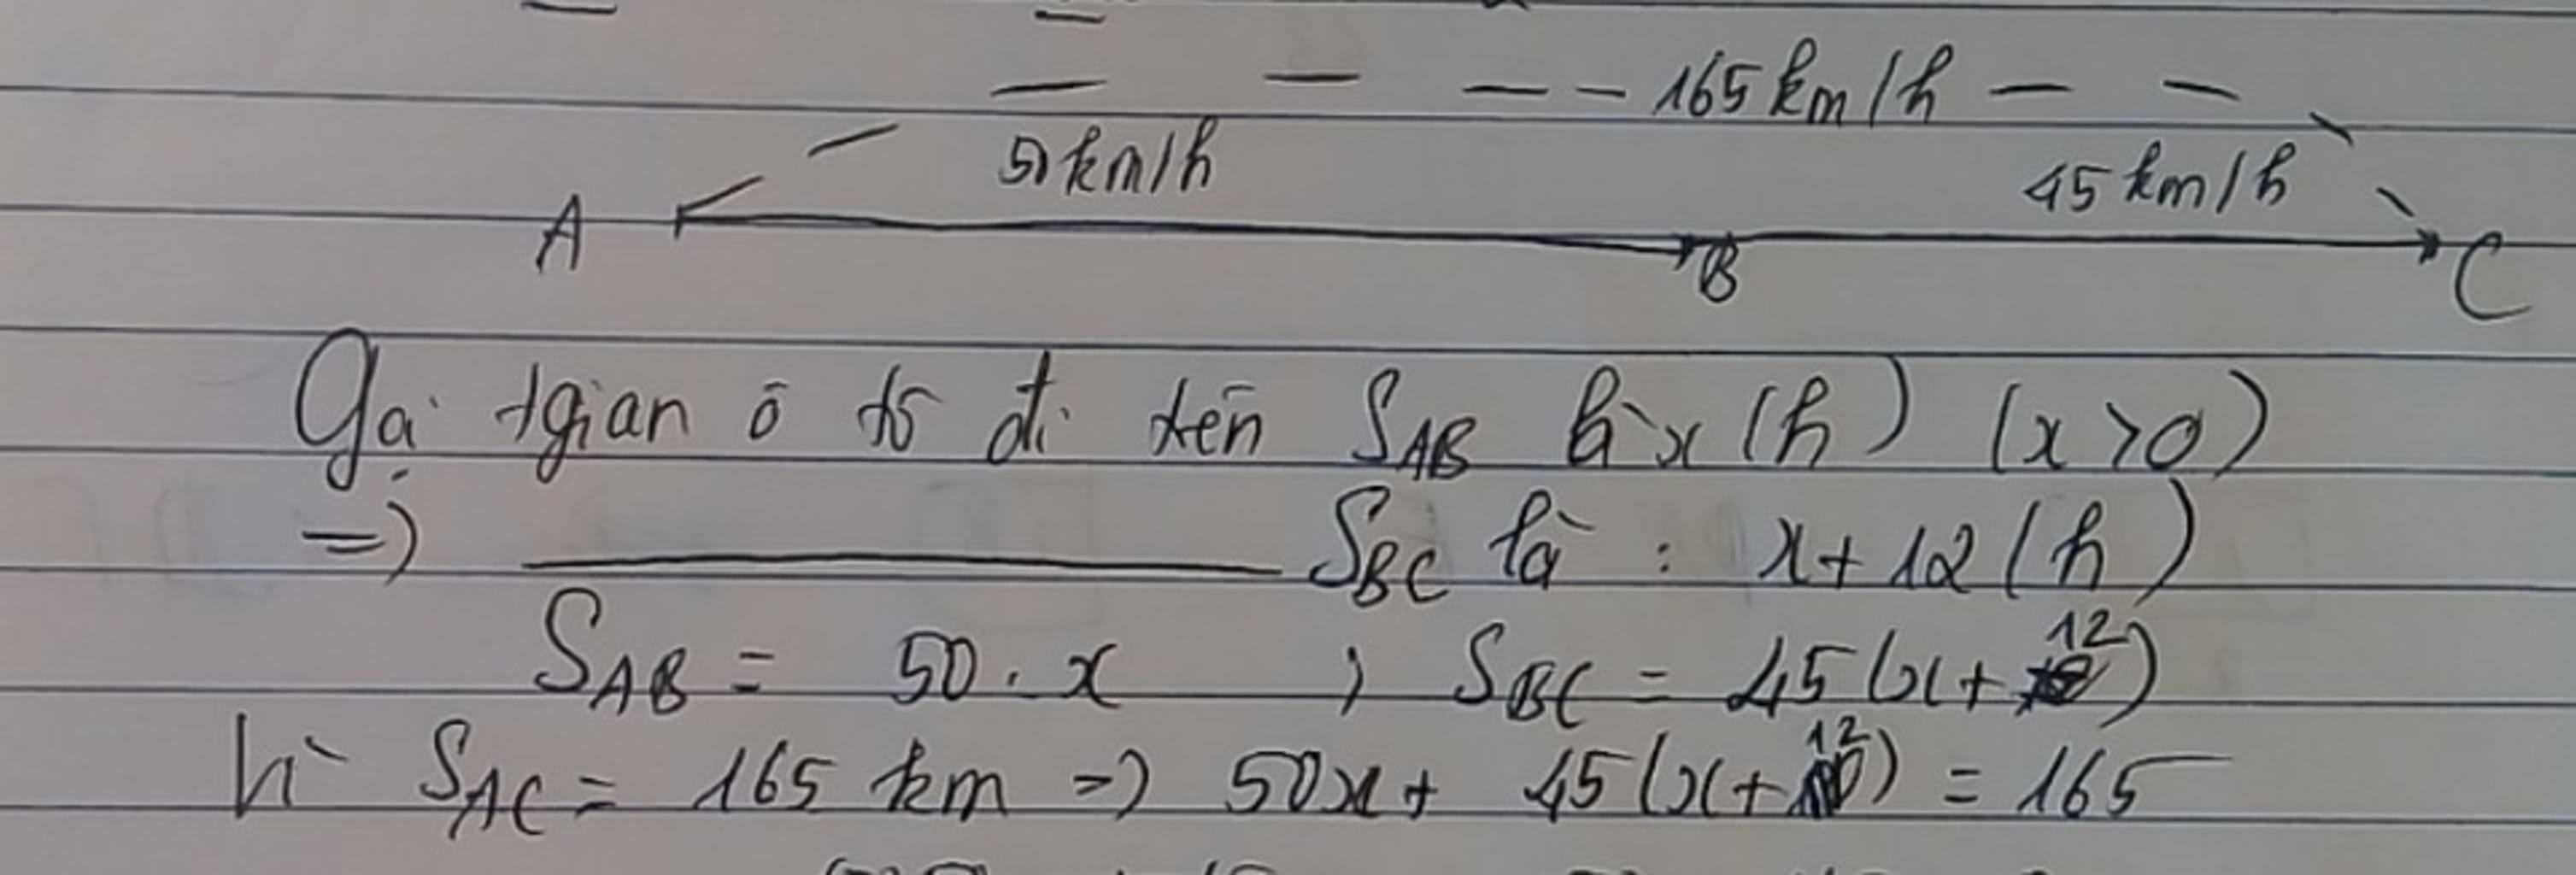 165 km/h
50 km/h
45 km/h
A B C
Gọi tgian ô tô đi trên SAB là x (h) (x > 0)
=> ———— SBC là : x + 12 (h)
SAB = 50 . x ; SBC = 45 (x + 12)
Vì SAC = 165 km => 50x + 45 (x + 12) = 165